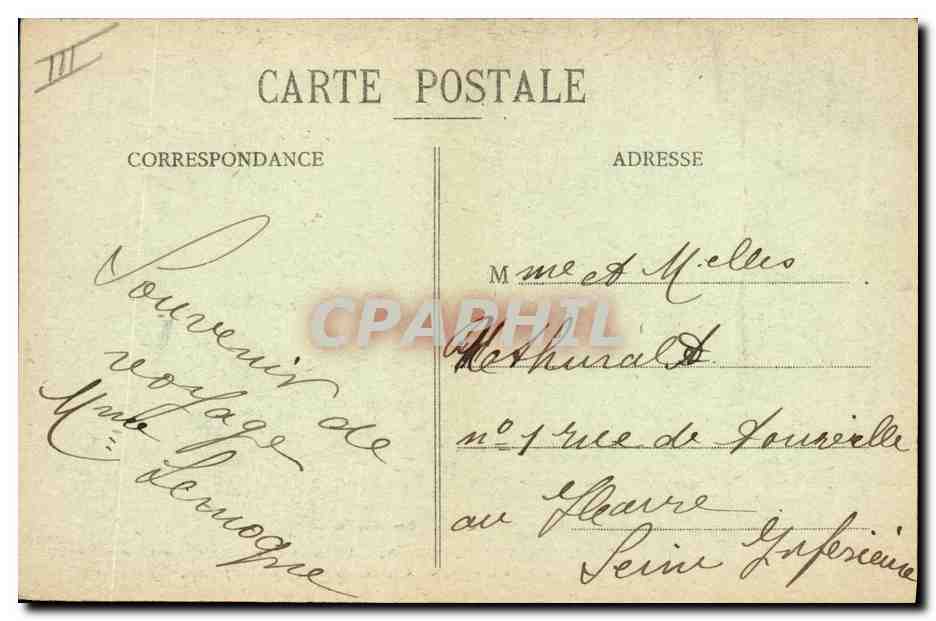 III
CARTE POSTALE
CORRESPONDANCE
ADRESSE
Souvenir de
voyage
Mme Lernogne
Mme et Melles
n° 1 rue de
au Havre
Seine Inferieure
CPAPHIL